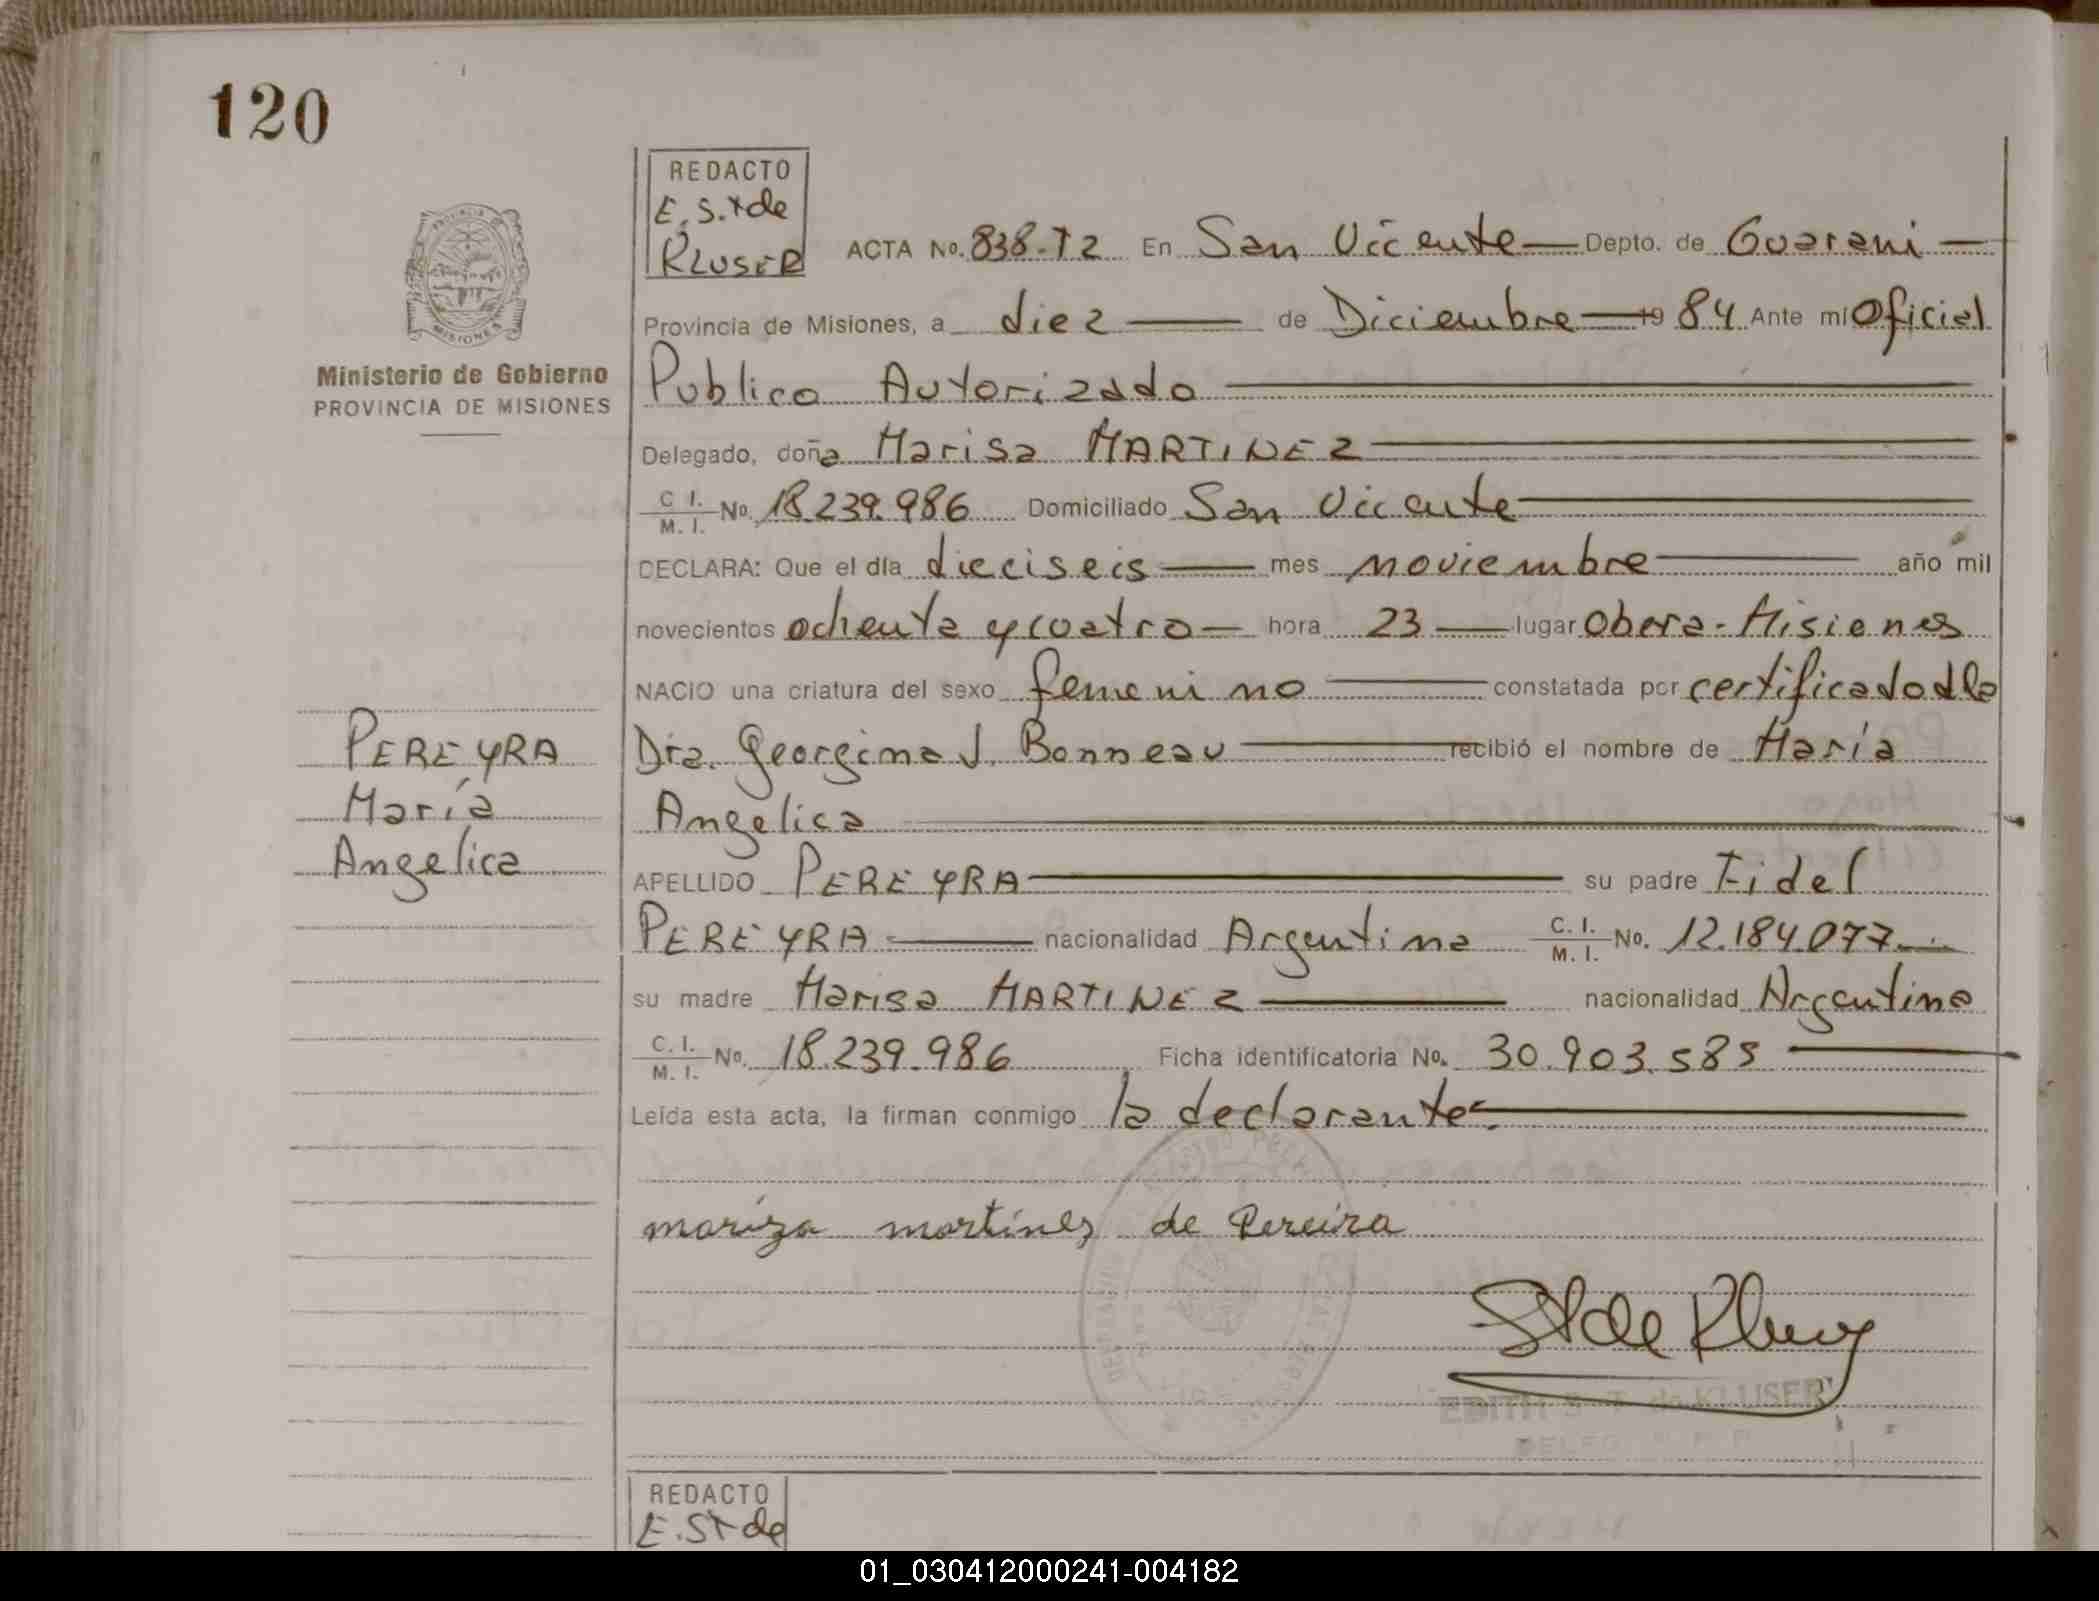 120
REDACTO
E. S. T de
KLUSER
ACTA No. 838-T2 En San Vicente Depto. de Guarani
PROVINCIA
MISIONES
Provincia de Misiones, a diez de Diciembre 19 84 Ante mi Oficial
Ministerio de Gobierno
PROVINCIA DE MISIONES
Publico Autorizado
Delegado, doña Marisa MARTINEZ
C. I.
M. I. No. 18.239.986 Domiciliado San Vicente
DECLARA: Que el día dieciseis mes noviembre año mil
novecientos ochenta y cuatro hora 23 lugar Obera - Misiones
NACIO una criatura del sexo femenino constatada por certificado d la
Dra. Georgina J. Bonneau recibió el nombre de María
Angelica
PEREYRA
María
Angelica
APELLIDO PEREYRA su padre Fidel
PEREYRA nacionalidad Argentina C. I.
M. I. No. 12.184.077
su madre Marisa MARTINEZ nacionalidad Argentina
C. I.
M. I. No. 18.239.986 Ficha identificatoria No. 30.903.585
Leída esta acta, la firman conmigo la declarante.
mariza martines de Pereira
S T de Kluser
EDITH S. T. de KLUSER
REDACTO
E. S T de
01_030412000241-004182